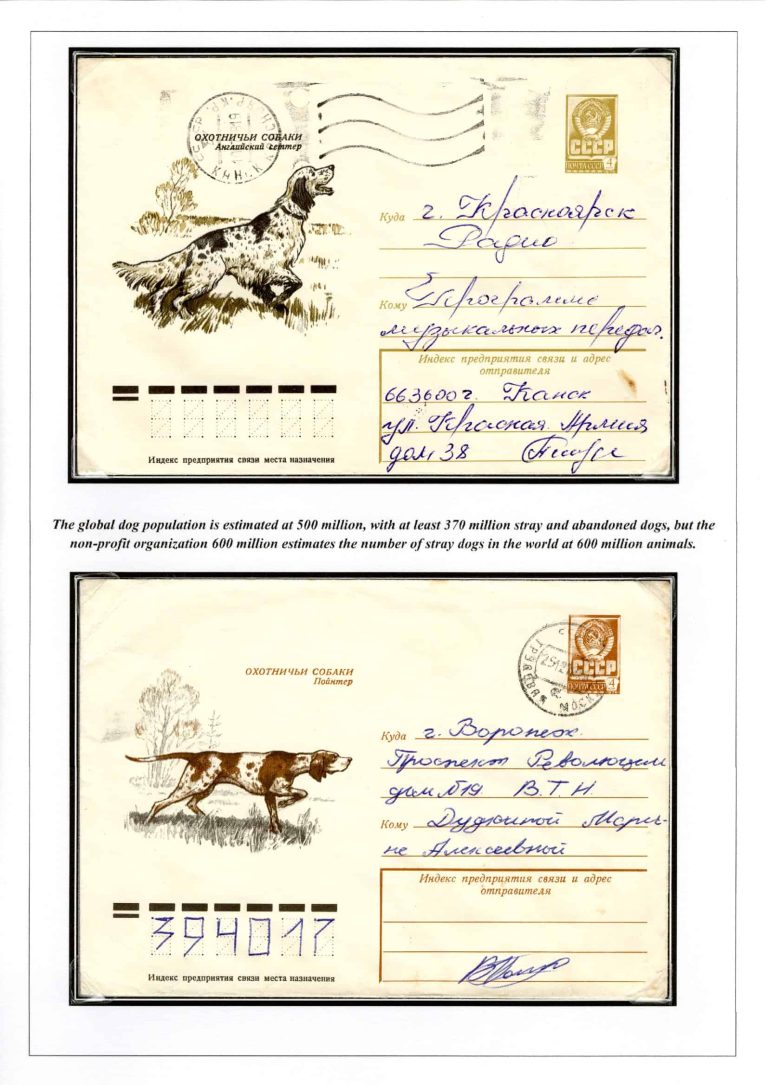 ОХОТНИЧЬИ СОБАКИ
Английский сеттер
КАНСК
СССР
ПОЧТА СССР 4
Куда г. Красноярск
Радио
Кому Программе
музыкальных передач.
Индекс предприятия связи и адрес
отправителя
663600 г. Канск
ул. Красная Армия
дом 38
Индекс предприятия связи места назначения
The global dog population is estimated at 500 million, with at least 370 million stray and abandoned dogs, but the
non-profit organization 600 million estimates the number of stray dogs in the world at 600 million animals.
ОХОТНИЧЬИ СОБАКИ
Пойнтер
СССР
ПОЧТА СССР 4
Куда г. Воронеж
Проспект Революции
дом №19 В.Т.Н.
Кому Мари-
не Алексеевной
Индекс предприятия связи и адрес
отправителя
394017
Индекс предприятия связи места назначения